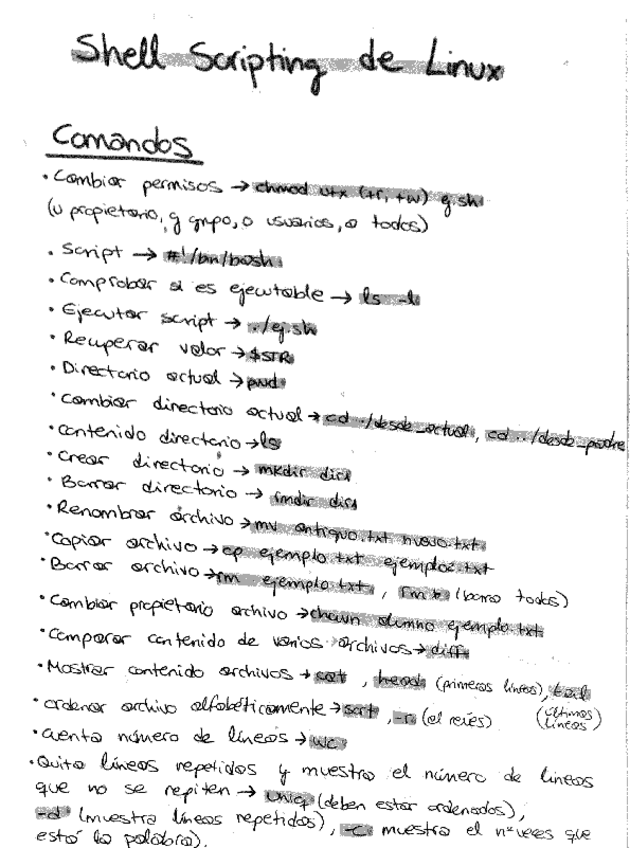 Shell Scripting de Linux
Comandos
• Cambiar permisos → chmod u+x (+r, +w) ej.sh
(u propietario, g grupo, o usuarios, a todos)
• Script → #!/bin/bash
• Comprobar si es ejecutable → ls -l
• Ejecutar script → ./ej.sh
• Recuperar valor → $STR
• Directorio actual → pwd
• Cambiar directorio actual → cd ./desde_actual, cd ../desde_padre
• Contenido directorio → ls
• Crear directorio → mkdir dir1
• Borrar directorio → rmdir dir1
• Renombrar archivo → mv antiguo.txt nuevo.txt
• Copiar archivo → cp ejemplo.txt ejemplo2.txt
• Borrar archivo → rm ejemplo.txt, rm * (borra todos)
• Cambiar propietario archivo → chown alumno ejemplo.txt
• Comparar contenido de varios archivos → diff
• Mostrar contenido archivos → cat, head (primeras líneas), tail
(últimas líneas)
• Ordenar archivo alfabéticamente → sort, -r (al revés)
• Cuenta número de líneas → wc
• Quita líneas repetidas y muestra el número de líneas
que no se repiten → uniq (deben estar ordenados),
-d (muestra líneas repetidas), -c muestra el nº veces que
está la palabra).